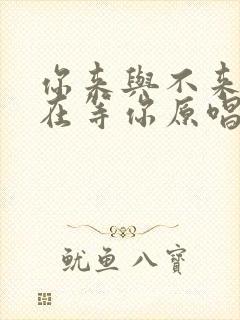 你来與不来
在等你原唱
鱿鱼八寶